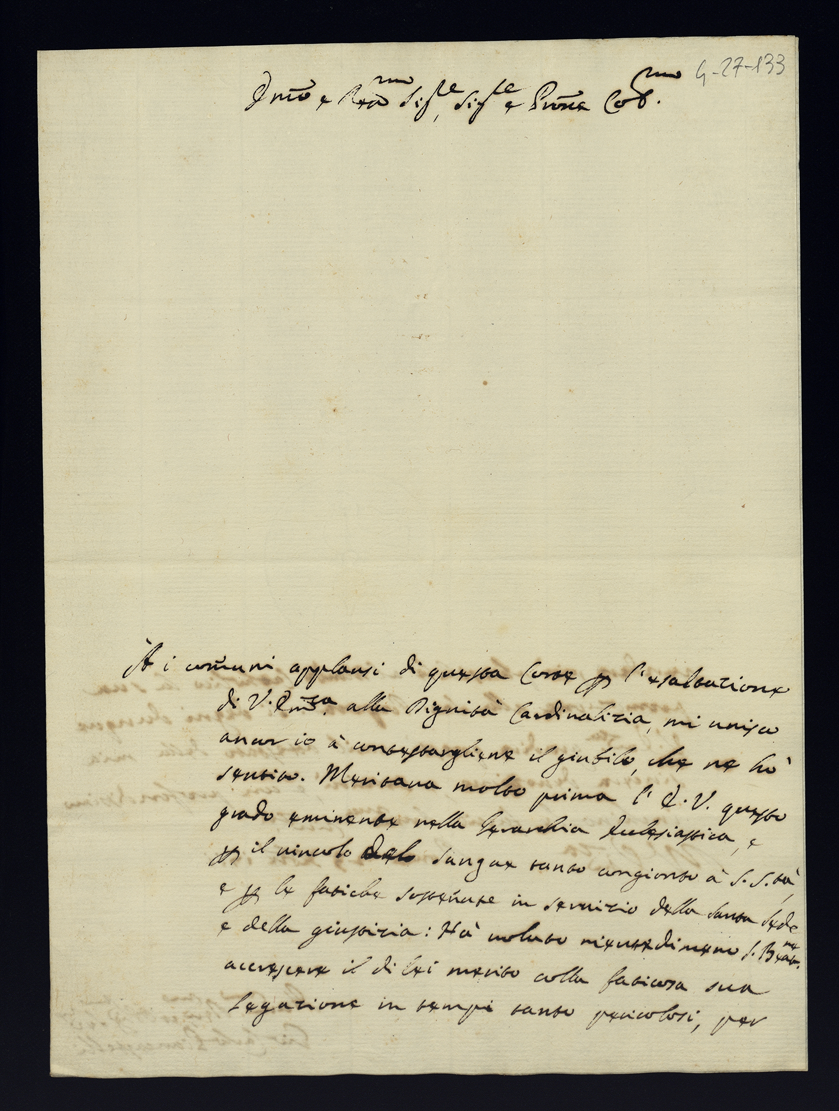 G-27-133
Emo e Rmo Sigre, Sigre e Prone Colmo.
A i comuni applausi di questa Corte p l'esaltatione
di V. Emza alla Dignità Cardinalitia, mi unisco
ancor io à contestargliene il giubilo, che ne hò
sentito. Meritava molto prima l'E.V. questo
grado eminente nella Gerarchia Ecclesiastica, e
p il vincolo del sangue tanto congionto à S. Stà,
e p le fatiche sostenute in servitio della Santa Sede
e della giustitia: Hà voluto nientedimeno S. Beatne
accrescere il di lei merito colla faticosa sua
Legatione in tempi tanto pericolosi, per